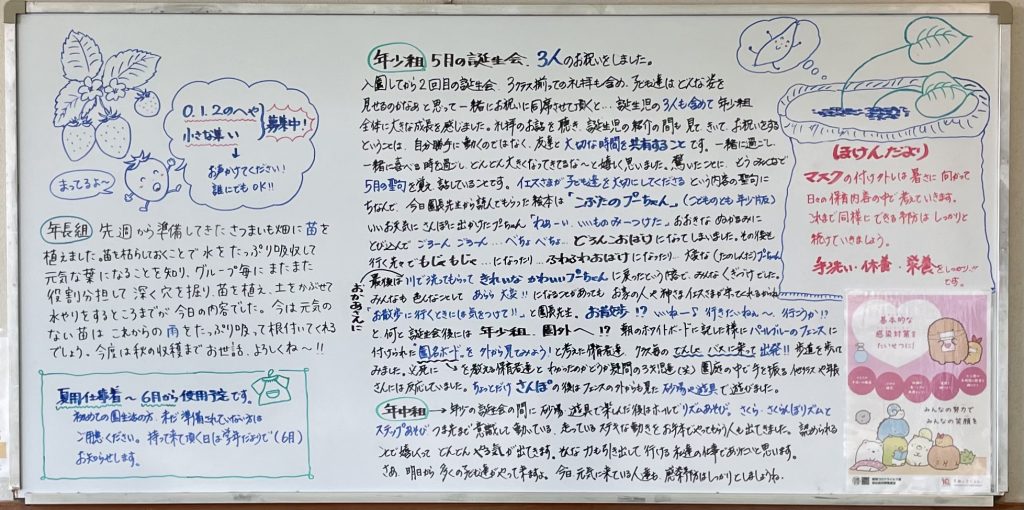 0.1.2のへや
小さな集い
募集中!
お声かけてください!
誰にでもOK!!
まってるよ〜
年長組 先週から準備してきたさつまいも畑に苗を
植えました。苗を枯らしておくことで水をたっぷり吸収して
元気な葉になることを知り、グループ毎にまたまた
役割分担して深く穴を掘り、苗を植え、土をかぶせて
水やりをするところまでが今日の内容でした。今は元気の
ない苗はこれからの雨をたっぷり吸って根付いてくれる
でしょう。今度は秋の収穫までお世話、よろしくね〜!!
夏用仕事着〜6月から使用予定です。
初めての園生活の方、未だ準備されていない方は
ご用意ください。持って来て頂く日は学年だよりで(6月)
お知らせします。
年少組 5月の誕生会、3人のお祝いをしました。
入園してから2回目の誕生会、3クラス揃っての礼拝も含め、子ども達はどんな姿を
見せるのかなぁと思って一緒にお祝いに同席させて頂くと…誕生児の3人も含めて年少組
全体に大きな成長を感じました。礼拝のお話を聴き、誕生児の紹介の間も見て、きいて、お祝いをする
ということは、自分勝手に動くのではなく、友達と大切な時間を共有することです。一緒に過ごし
一緒に喜べる時を過ごし、どんどん大きくなってきてるな〜と嬉しく思いました。驚いたことに、もうみんなで
5月の聖句を覚え、話していることです。イエスさまが子ども達を大切にしてくださるという内容の聖句に
ちなんで、今日園長先生から読んでもらった絵本は「こぶたのプーちゃん」(こどものとも年少版)
いいお天気にさんぽに出かけたプーちゃん「わぁーい いいものみーつけた」おおきなぬかるみに
とびこんでごろーんごろーん…べちょべちょ…どろんこおばけになってしまいました。その後も
行く先々でもじもじゃ…になったり…ふわふわおばけになったり…
最後は川で洗ってもらってきれいなかわいいプーちゃんに戻ったという話で、みんなくぎづけでした。
おかあさんに
「お散歩に行くときには気をつけて!!」と園長先生。お散歩!?いいねー♪行きたいねん〜行こうか!?
と、何と誕生会後には年少組、園外へ!?朝のホワイトボードに記した様にパールブルーのフェンスに
付けられた園名ボードを外から見てみよう!と考えた保育者達、クラス毎のでんしゃ、バスに乗って出発!!歩道を歩いて
さんには反応していました。ちょっとだけさんぽの後はフェンスの外からも見た砂場や遊具で遊びました。
年中組 → 年少の誕生会の間に砂場、遊具で楽しんだ後はホールでリズムあそび。さくらさくらんぼリズムと
ことが嬉しくてどんどんやる気が出てきます。
さあ、明日から多くの子ども達がやって来ますよ。今日元気に来ている人達も、感染予防はしっかりとしましょうね。
ほけんだより
マスクの付け外しは暑さに向かって
日々の保育内容の中で考えていきます。
これまで同様にできる予防はしっかりと
続けていきましょう。
手洗い・休養・栄養をしっかり!!
です。
基本的な
感染対策を
たいせつに!
みんなの努力で
みんなの笑顔を